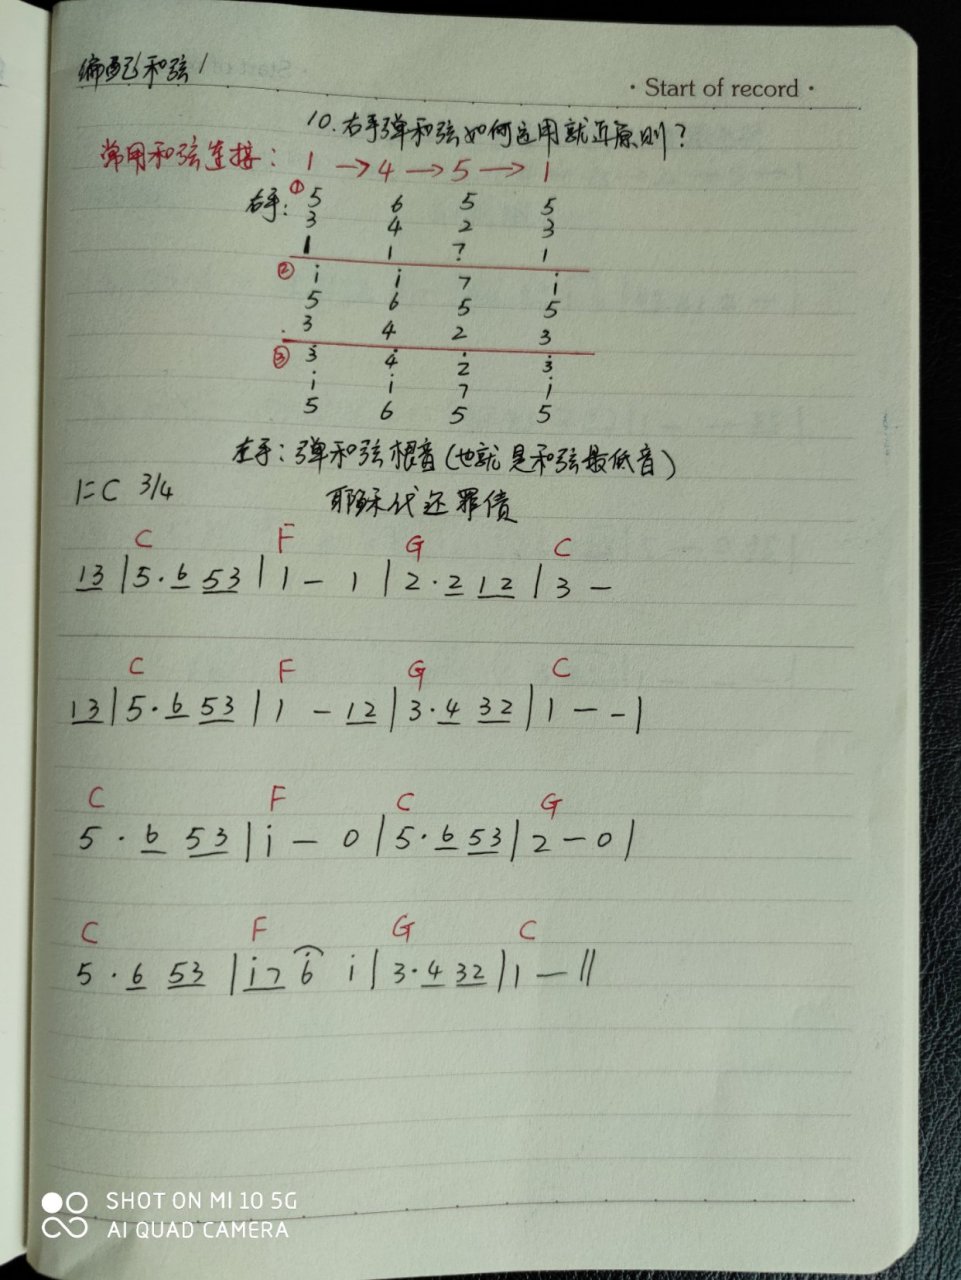 编配和弦1
· Start of record ·
10.右手弹和弦如何运用就近原则?
常用和弦连接: 1 → 4 → 5 → 1
右手: ① 5 6 5 5
3 4 2 3
1 1 7̣ 1
② i i 7 i
5 6 5 5
3 4 2 3
③ 3̇ 4̇ 2̇ 3̇
i i 7 i
5 6 5 5
左手: 弹和弦根音(也就是和弦最低音)
1=C 3/4 耶稣代还罪债
C F G C
13 | 5·6 53 | 1 - 1 | 2·2 12 | 3 -
C F G C
13 | 5·6 53 | 1 - 12 | 3·4 32 | 1 - - |
C F C G
5·6 53 | i - 0 | 5·6 53 | 2 - 0 |
C F G C
5·6 53 | i7 6 i | 3·4 32 | 1 - ||
SHOT ON MI 10 5G
AI QUAD CAMERA